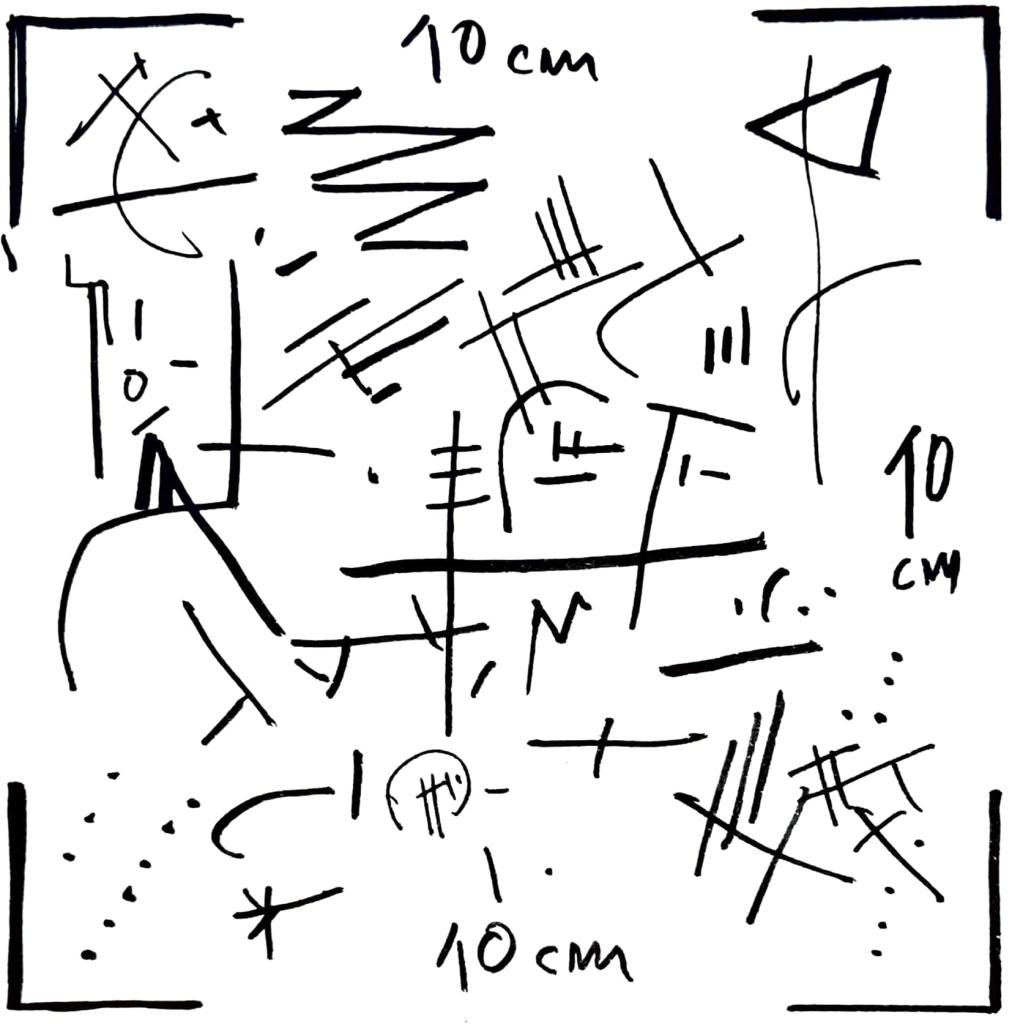 10 cm
10
cm
10 cm